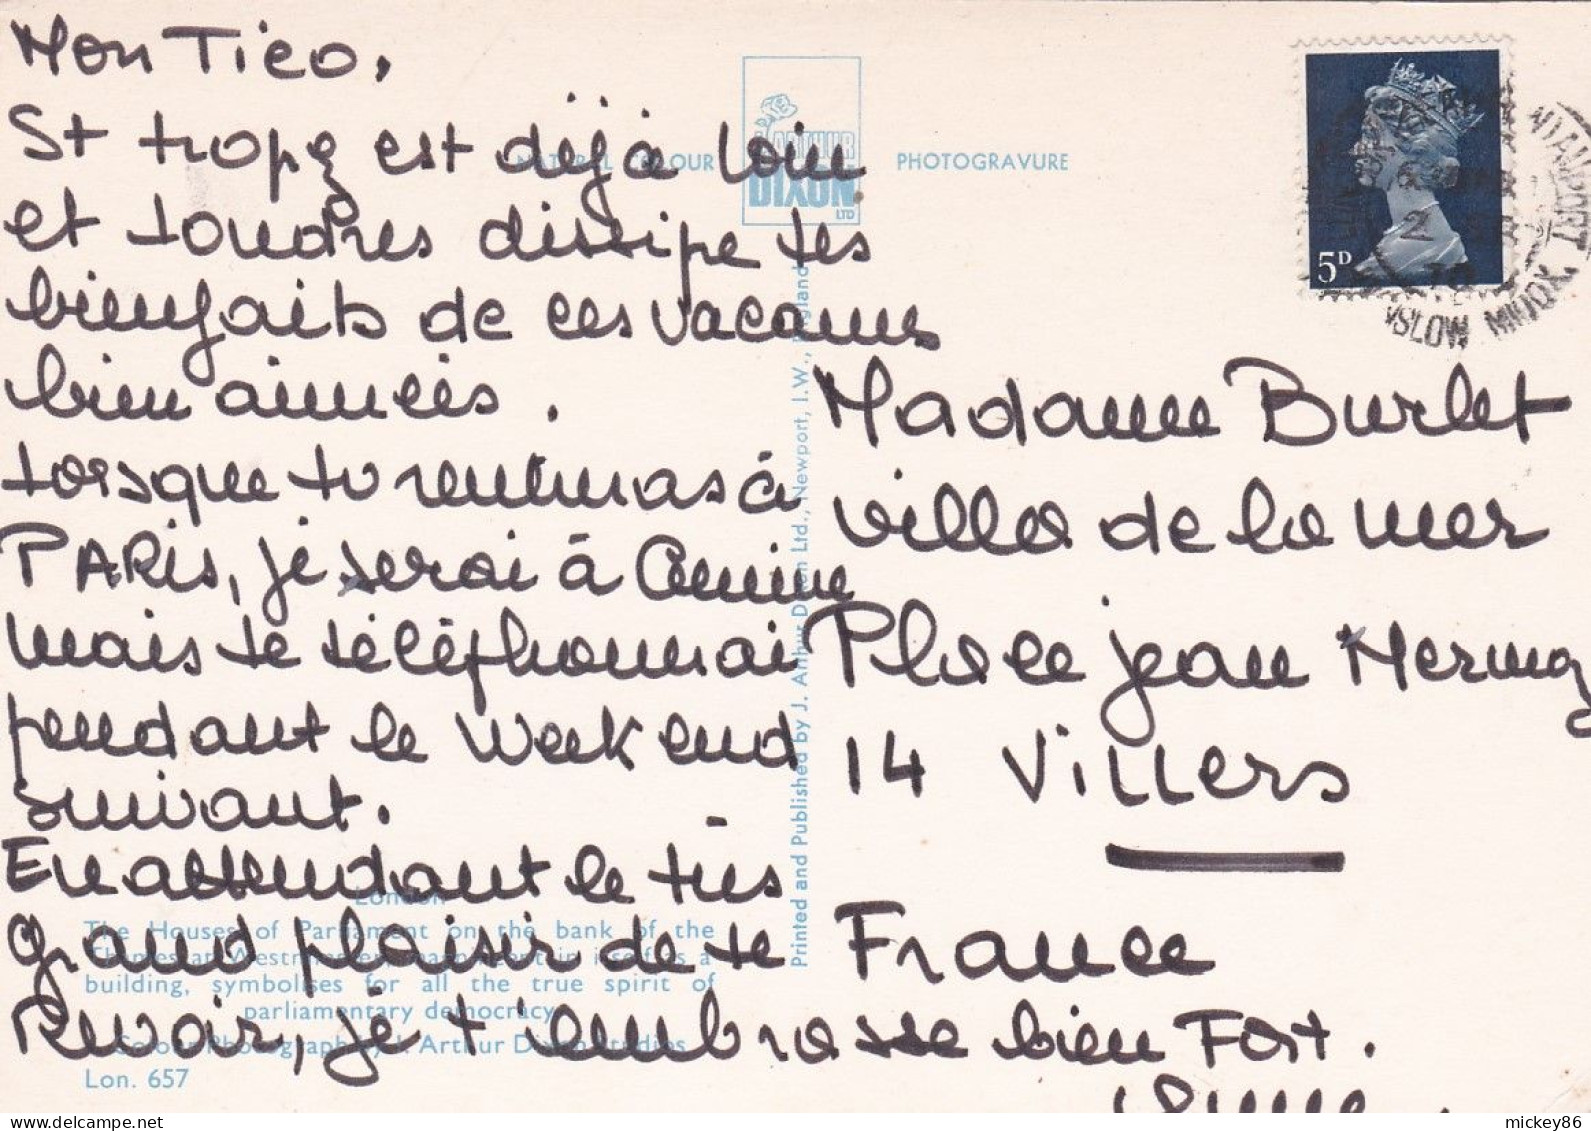 Mon Tico,
St tropez est déjà loin
et Londres dissipe les
bienfaits de ces vacances
bien aimées.
Lorsque tu reviendras à
PARIS, je serai à
mais te téléphonerai
pendant le week end
suivant.
En attendant le très
grand plaisir de te
Revoir, je t'embrasse bien Fort.
Madame Burlet
villa de la mer
Place jean Mermoz
14 Villers
France
NATURAL COLOUR
ARTHUR
DIXON
LTD
PHOTOGRAVURE
5D
NSLOW MIDDX
Printed and Published by J. Arthur Dixon Ltd., Newport, I.W., England
London
The Houses of Parliament on the bank of the
Thames at Westminster, magnificent in itself as a
building, symbolises for all the true spirit of
parliamentary democracy
Colour Photograph by J. Arthur Dixon Studios
Lon. 657
mickey86